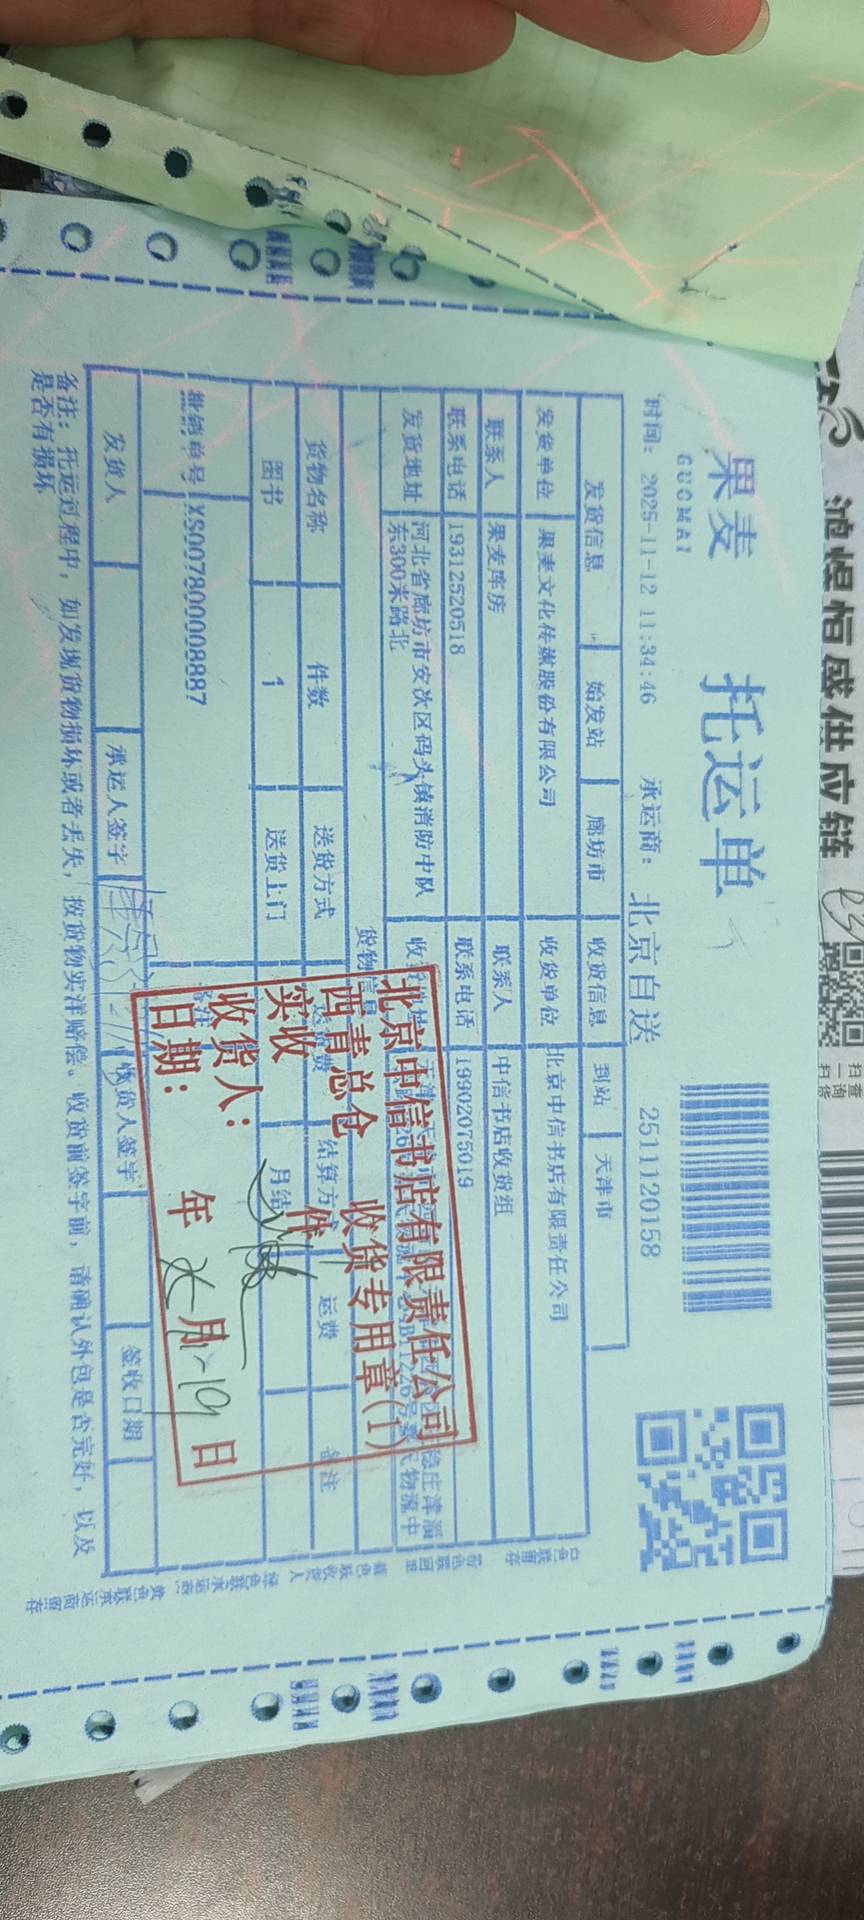 果麦
GUOMAI
托运单
时间: 2025-11-12 11:34:46 承运商: 北京自送 2511120158
发货信息 始发站 廊坊市 收货信息 到站 天津市
发货单位 果麦文化传媒股份有限公司 收货单位 北京中信书店有限责任公司
联系人 果麦库房 联系人 中信书店收货组
联系电话 19312520518 联系电话 19902075019
发货地址 河北省廊坊市安次区码头镇消防中队
东300米路北
货物信息
货物名称 件数 送货方式 结算方式 运费 备注
图书 1 送货上门 月结
批销单号 XS007800008887
发货人 承运人签字 收货人签字 签收日期
备注: 托运过程中, 如发现货物损坏或者丢失, 按货物实洋赔偿。收货前签字前, 请确认外包是否完好, 以及
是否有损坏
北京中信书店有限责任公司
西青总仓 收货专用章(1)
实收 件
收货人:
日期: 年 月 19 日
白色联留存
鸿煜恒盛供应链
扫一扫
查询货